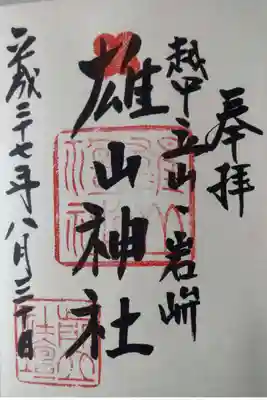 奉拝
越中立山岩峅
雄山神社
平成二十七年八月三十日
前立
社壇